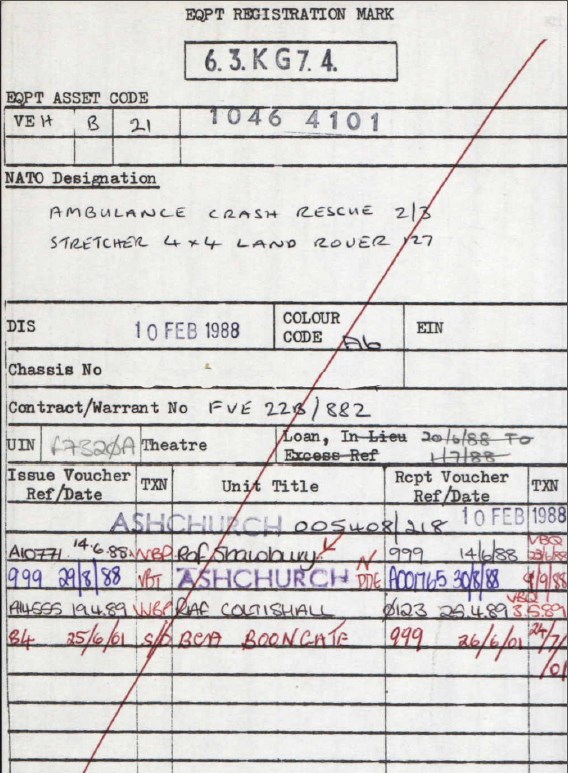 EQPT REGISTRATION MARK
6.3.KG7.4.
EQPT ASSET CODE
VEH B 21 1046 4101
NATO Designation
AMBULANCE CRASH RESCUE 2/3
STRETCHER 4x4 LAND ROVER 127
DIS 10 FEB 1988 COLOUR CODE A6 EIN
Chassis No
Contract/Warrant No FVE 22B/882
UIN F7320A Theatre Loan, In Lieu Excess Ref 20/6/88 TO 1/7/88
Issue Voucher Ref/Date TXN Unit Title Rcpt Voucher Ref/Date TXN
ASHCHURCH 005408/218 10 FEB 1988
A10771 14.6.88 WBP Raf Shawbury 999 14/6/88 VBQ
999 29/8/88 VBT ASHCHURCH DDE A001765 30/8/88 9/9/88
A14555 19.4.89 WBP RAF COLTISHALL 0123 25.4.89 VBQ 3.5.89
84 25/6/01 S/O BCA BOONGATE 999 26/6/01 24/7/01